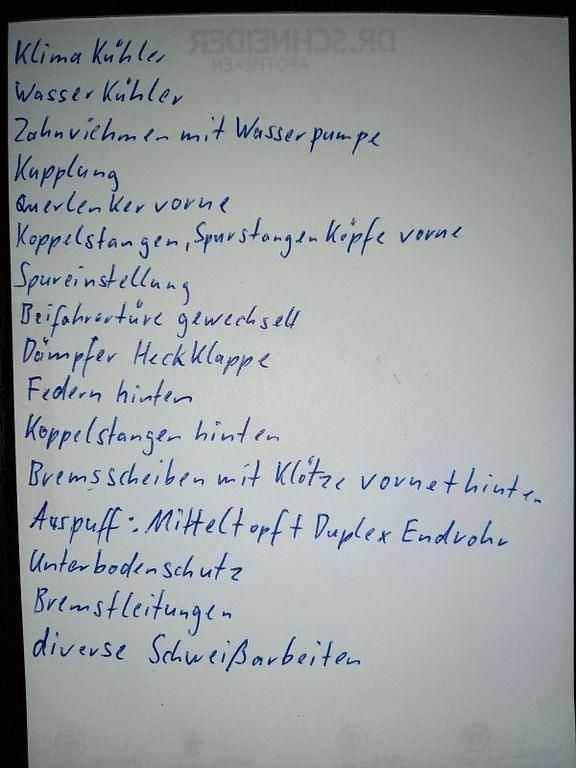 DR.SCHNEIDER
APOTHEKEN
Klima Kühler
Wasser Kühler
Zahnriehmen mit Wasserpumpe
Kupplung
Querlenker vorne
Koppelstangen, Spurstangen Köpfe vorne
Spureinstellung
Beifahrertüre gewechselt
Dämpfer Heckklappe
Federn hinten
Koppelstangen hinten
Bremsscheiben mit Klötze vorne+hinten
Auspuff: Mitteltopf + Duplex Endrohr
Unterbodenschutz
Bremsleitungen
diverse Schweißarbeiten